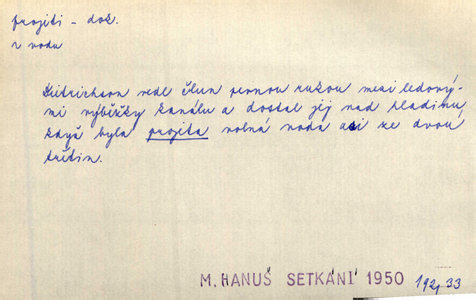 projiti - dok.
z vodu
Dietrichson vedl člun pevnou rukou mezi ledový-
mi výběžky kanálu a dostal jej nad hladinu,
když byla projita volná voda asi ze dvou
třetin.
M. HANUŠ SETKÁNÍ 1950 192, 33